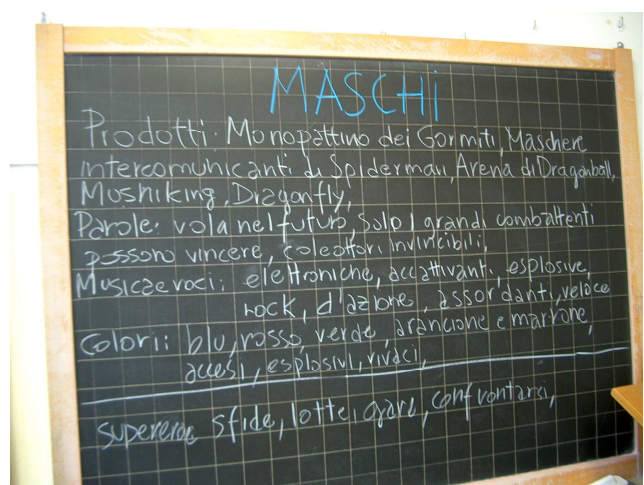 MASCHI
Prodotti: Monopattino dei Gormiti, Maschere
intercomunicanti di Spiderman, Arena di Dragonball,
Mushiking, Dragonfly,
Parole: vola nel futuro, solo i grandi combattenti
possono vincere, coleottori invincibili,
Musica e voci: elettroniche, accattivanti, esplosive,
rock, d'azione, assordanti, veloce
Colori: blu, rosso, verde, arancione e marrone,
accesi, esplosivi, vivaci,
supereroe, sfide, lotte, gare, confrontarsi,